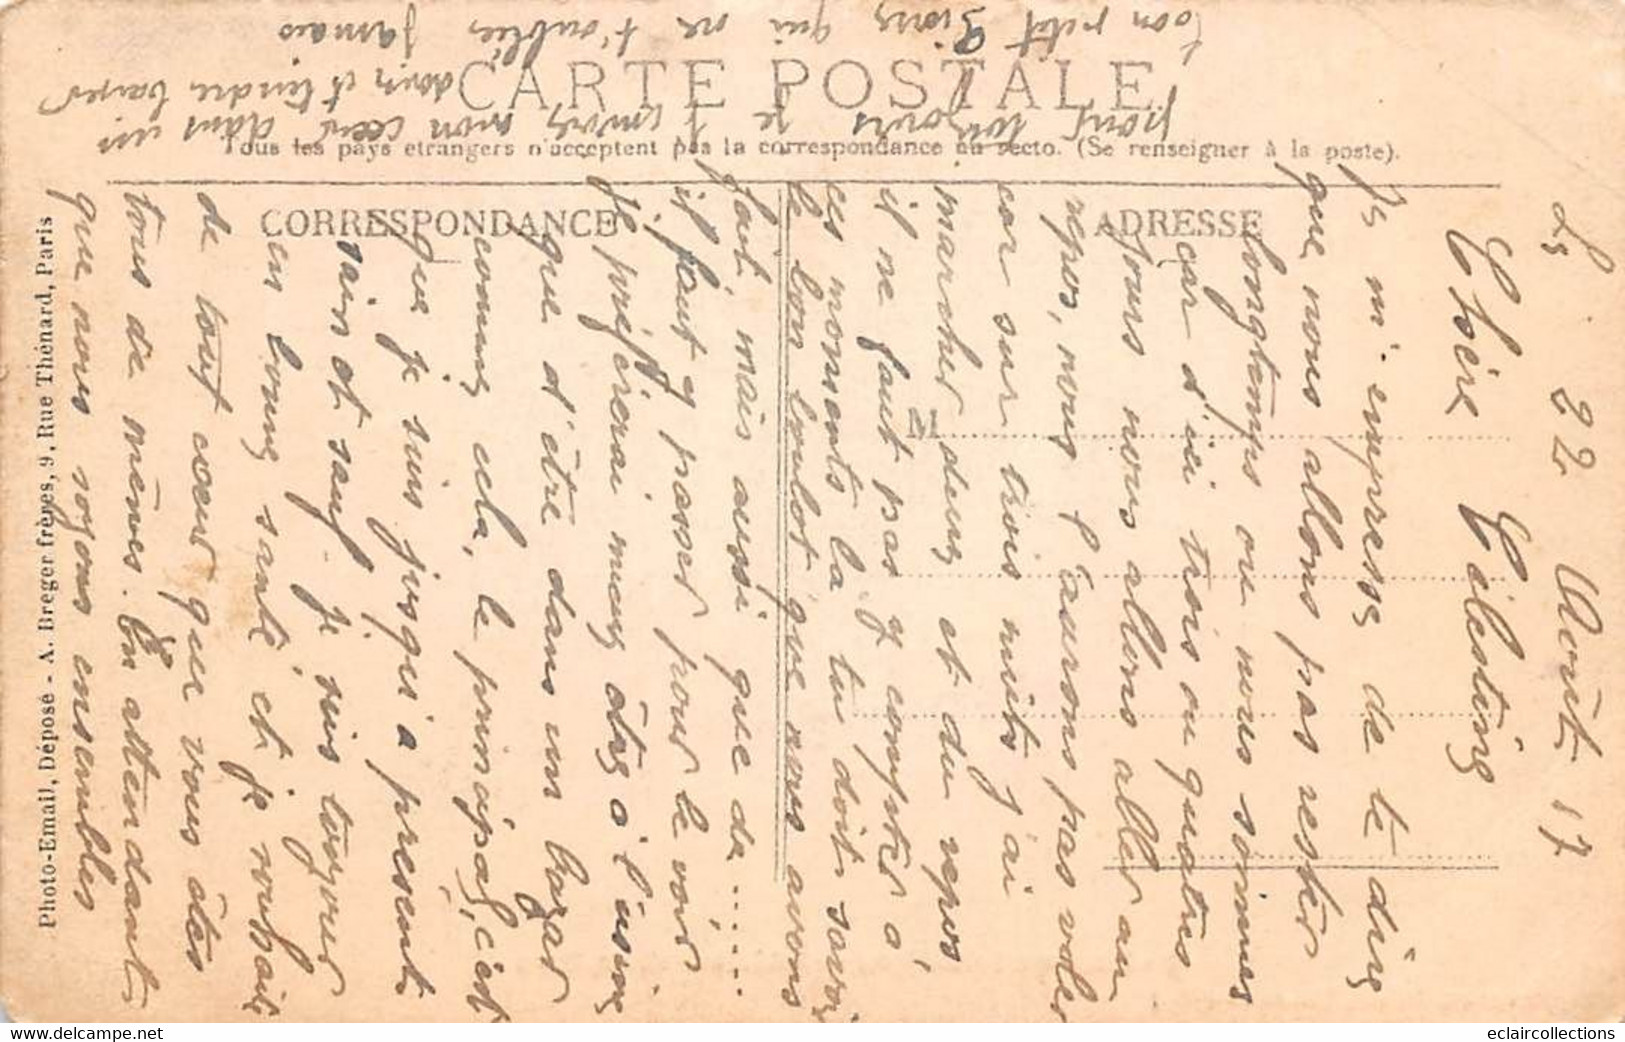 CARTE POSTALE
Tous les pays étrangers n'acceptent pas la correspondance au recto. (Se renseigner à la poste).
CORRESPONDANCE
ADRESSE
M
Photo-Email, Déposé - A. Breger frères, 9, Rue Thénard, Paris
Le 22 Août 17
Chère Célestine
Je m'empresse de te dire
que nous allons pas rester
longtemps ou nous sommes
car d'ici trois ou quatre
jours nous allons aller au
repos, nous l'aurons pas voler
car sur trois nuits j'ai
marcher deux et du repos
il ne faut pas y compter à
ces moments là tu doit savoir
le bon boulot que nous avons
fait, mais aussi que de.....
il faut y passer pour le voir
je préfèrerai mieux être a l'usine
que d'être dans un bazar
comme cela, le principal, c'est
que je suis jusqu'a présent
sain et sauf je suis toujours
en bonne santé et je souhaite
de tout cœur que vous êtes
tous de mêmes. En attendant
que nous soyons ensembles
pour toujours je t'envoie mon cœur dans un
doux et tendre baiser
ton petit qui ne t'oublies jamais
eclaircollections